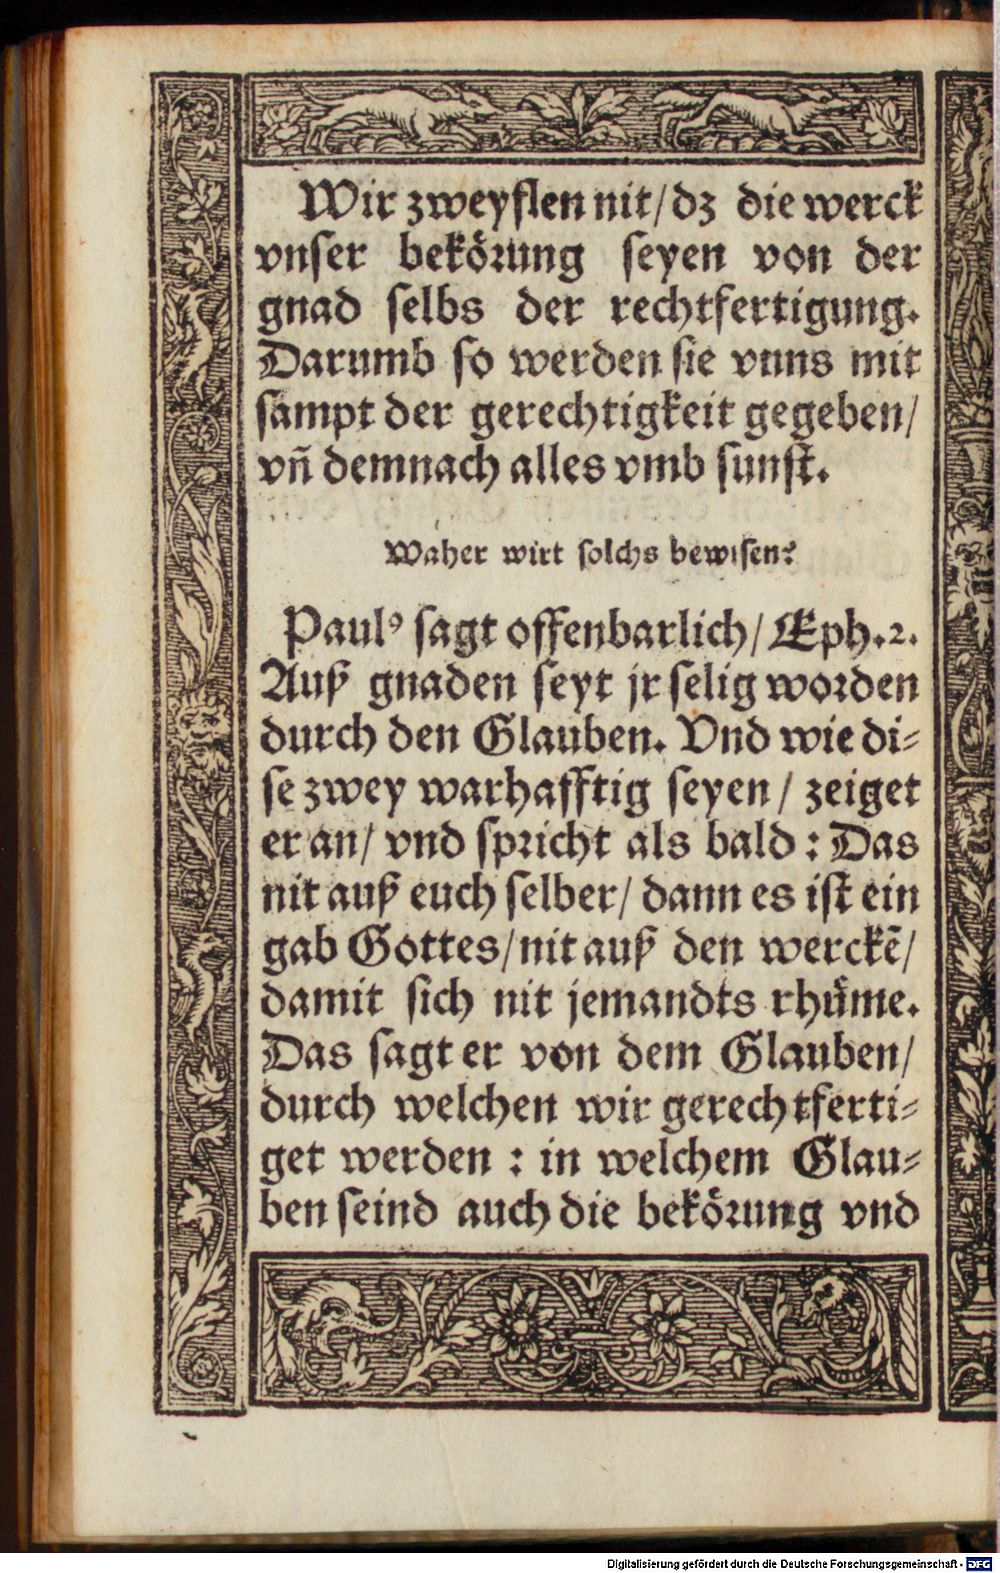 Wir zweyflen nit/dz die werck
vnser bekörung seyen von der
gnad selbs der rechtfertigung.
Darumb so werden sie vnns mit
sampt der gerechtigkeit gegeben/
vñ demnach alles vmb sunst.
Waher wirt solchs bewisen?
Paulꝰ sagt offenbarlich/ Eph.2.
Auß gnaden seyt jr selig worden
durch den Glauben. Vnd wie di-
se zwey warhafftig seyen/ zeiget
er an/ vnd spricht als bald: Das
nit auß euch selber/ dann es ist ein
gab Gottes/nit auß den werckē/
damit sich nit jemandts rhüme.
Das sagt er von dem Glauben/
durch welchen wir gerechtferti-
get werden: in welchem Glau-
ben seind auch die bekörung vnd
Digitalisierung gefördert durch die Deutsche Forschungsgemeinschaft - DFG